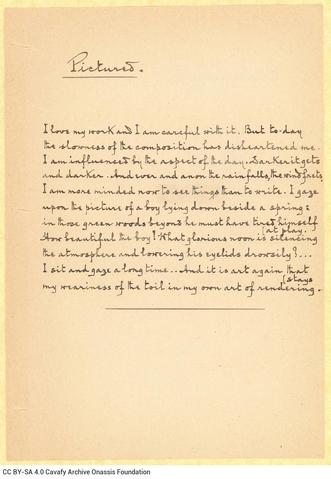 Pictured.
I love my work and I am careful with it. But to-day
the slowness of the composition has disheartened me.
I am influenced by the aspect of the day. Darker it gets
and darker. And ever and anon the rain falls, the wind frets.
I am more minded now to see things than to write. I gaze
upon the picture of a boy lying down beside a spring:
in those green woods beyond he must have tired himself
at play.
How beautiful the boy! What glorious noon is silencing
the atmosphere and lowering his eyelids drowsily?...
I sit and gaze a long time... And it is art again that
stays
my weariness of the toil in my own art of rendering.
CC BY-SA 4.0 Cavafy Archive Onassis Foundation